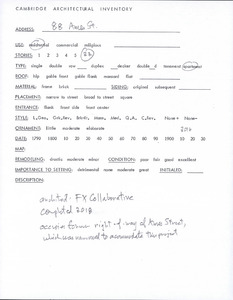 CAMBRIDGE ARCHITECTURAL INVENTORY
ADDRESS: 88 Ames St.
USE: residential commercial religious
STORIES: 1 2 3 4 5 22
TYPE: single double row duplex decker double d movement apartment
ROOF: hip gable front gable flank mansard flat
MATERIAL: frame brick SIDING: original subsequent
PLACEMENT: narrow to street broad to street square
ENTRANCE: flank front side front center
STYLE: None
ORNAMENT: little moderate elaborate
DATE: 1790 1800 10 20 30 40 50 60 70 80 90 1900 10 20 30
MAP:
REMODELING: drastic moderate minor CONDITION: poor fair good excellent
IMPORTANCE TO SETTING: detrimental none moderate great INITIALED:
DESCRIPTION:
architect - FX Collaborative
completed 2018
former right-of-way of Ames Street,
which was narrowed to accommodate the project